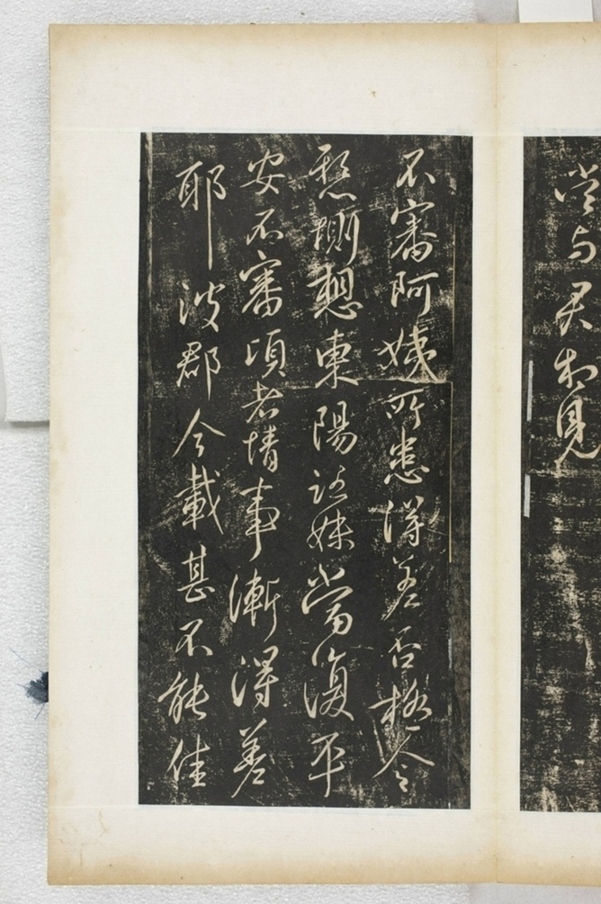 當与君相見
不審阿姨所患得差否極令
愁惻想東陽諸妹當復平
安不審頃者情事漸得差
耶彼郡今載甚不能佳